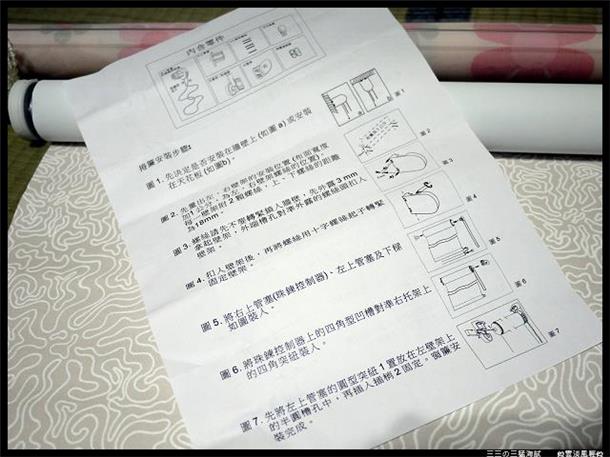 內含零件
捲簾安裝步驟:
圖1. 先決定是否安裝在牆壁上(如圖a)或安裝
在天花板(如圖b)。
圖2. 先量出左,右壁架的安裝位置(布面寬度
加1公分,為左,右壁架螺絲的位置)。
每一壁架附2顆螺絲,上,下螺絲的距離
為18mm。
圖3. 螺絲請先不要轉緊鎖入牆壁,先外露3mm
拿起壁架,外端槽孔對準外露的螺絲頭扣入
壁架。
圖4. 扣入壁架後,再將螺絲用十字螺絲起子轉緊
固定壁架。
圖5. 將右上管塞(珠鍊控制器)、左上管塞及下樑
如圖裝入。
圖6. 將珠鍊控制器上的四角型凹槽對準右托架上
的四角突紐裝入。
圖7. 先將左上管塞的圓型突紐1置放在左壁架上
的半圓槽孔中,再插入插梢2固定。窗簾安
裝完成。
圖1
圖2
圖3
圖4
圖5
圖6
圖7
三三の三猫海賊